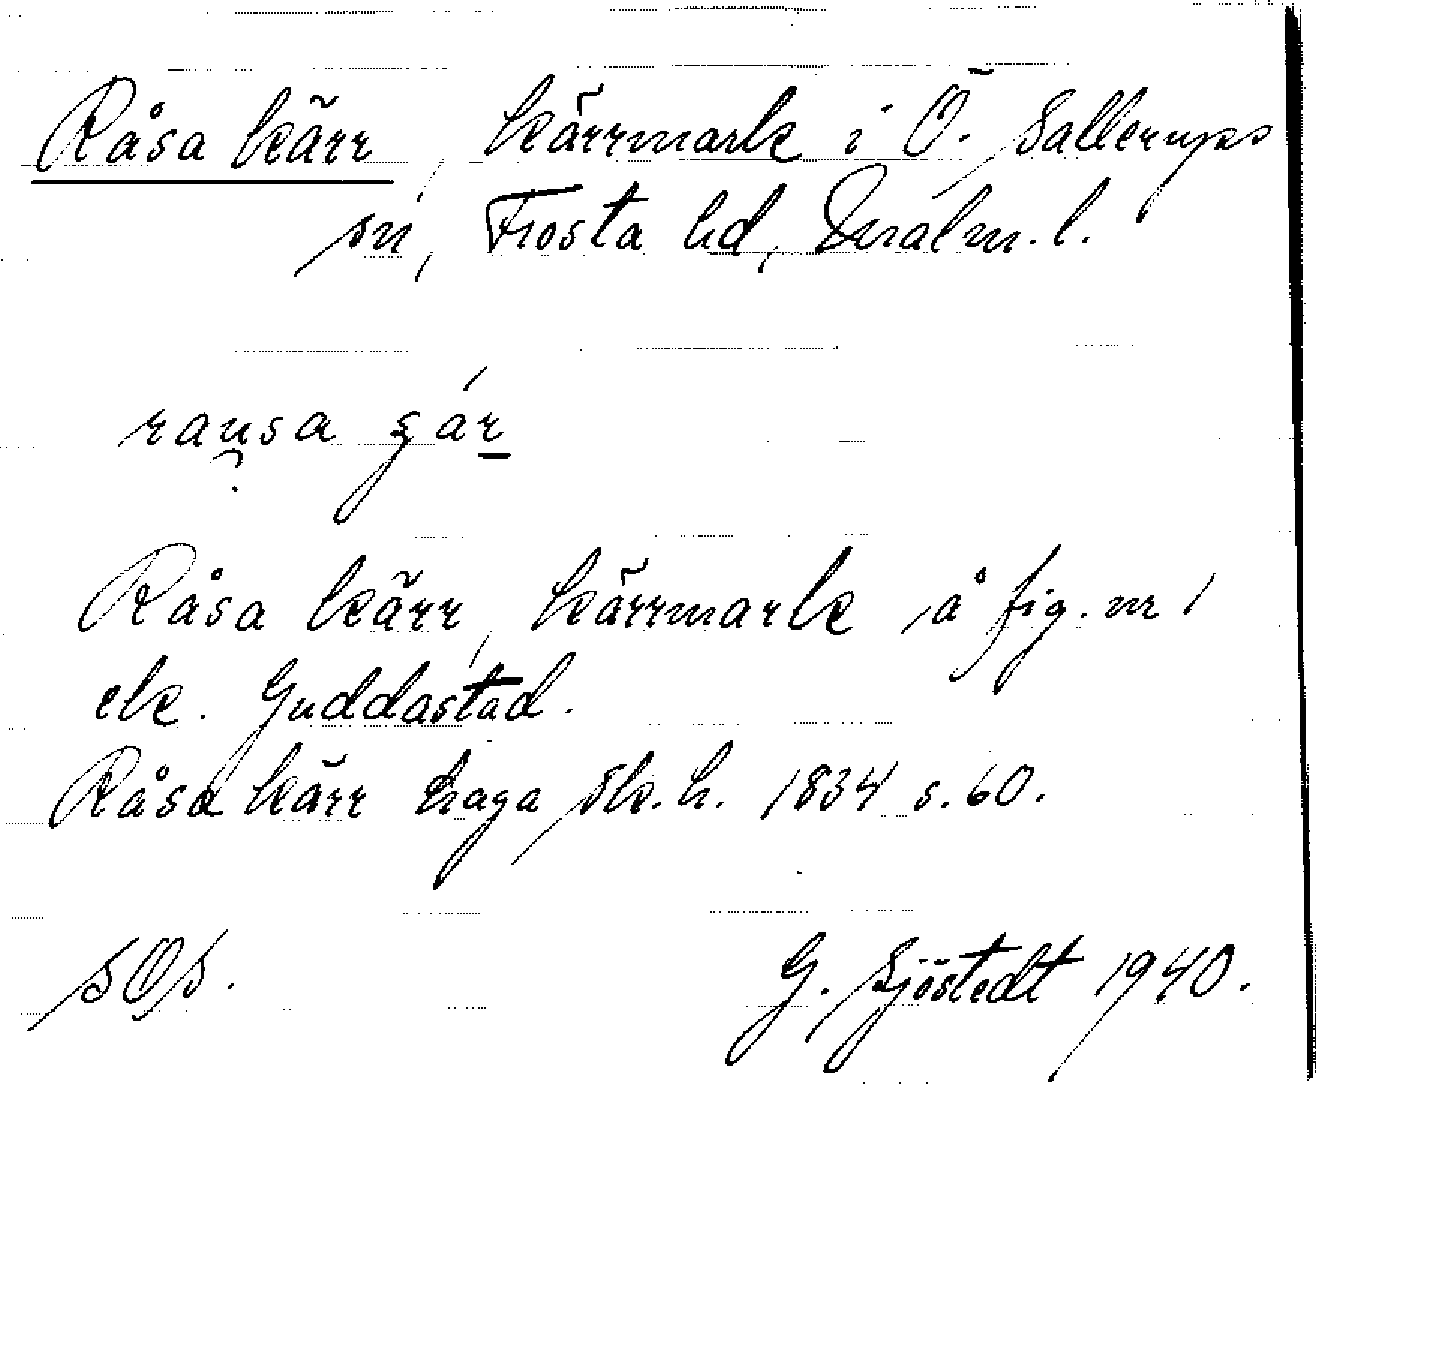 Råsa kärr, kärrmark i Ö. Sallerups
sn, Frosta hd, Malm. l.
rausa gár
Råsa kärr, kärrmark å fig. nr 1
ek. Guddastad.
Råsa kärr haga Sk. h. 1834 s. 60.
SOS.
G. Sjöstedt 1940.